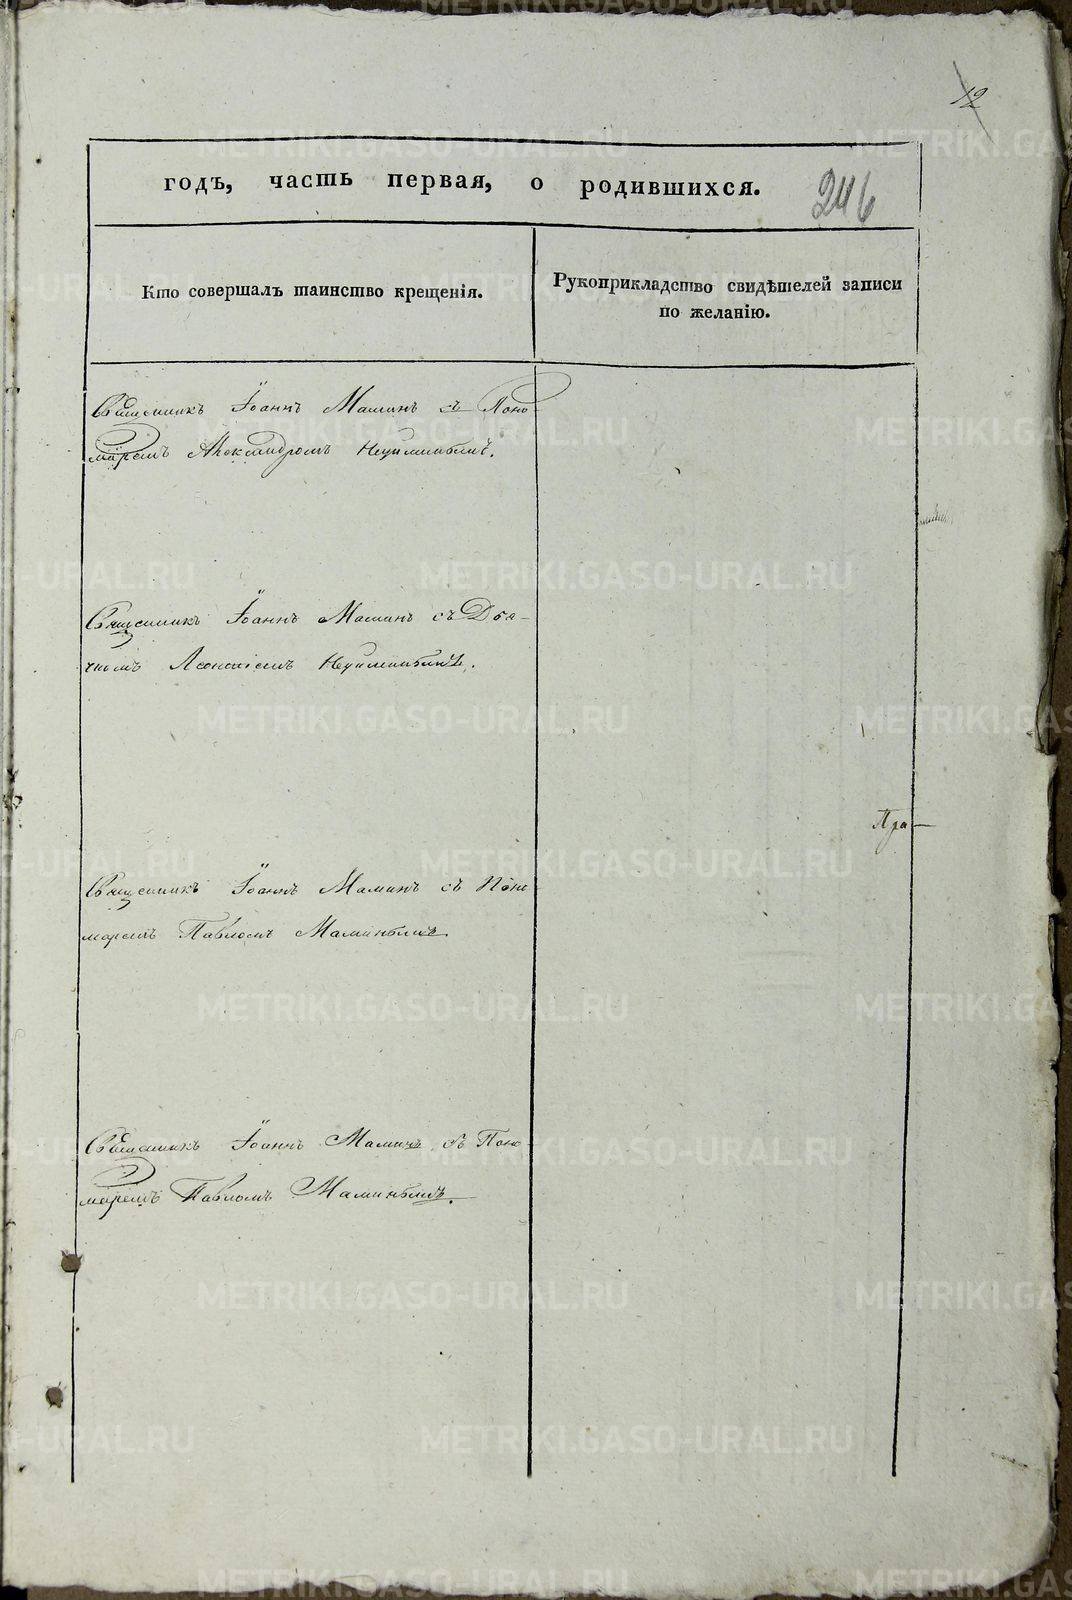 12
годъ, часть первая, о родившихся.
246
Кто совершалъ таинство крещенія.
Рукоприкладство свидѣтелей записи
по желанію.
Священникъ Іоаннъ Маминъ съ Поно
маремъ Александромъ Неуиминымъ.
Священникъ Іоаннъ Маминъ съ Дья-
чкомъ Неуиминымъ.
Пра-
Священникъ Іоаннъ Маминъ съ Поно
маремъ Павломъ Маминымъ.
Священникъ Іоаннъ Маминъ съ Поно
маремъ Павломъ Маминымъ.
METRIKI.GASO-URAL.RU